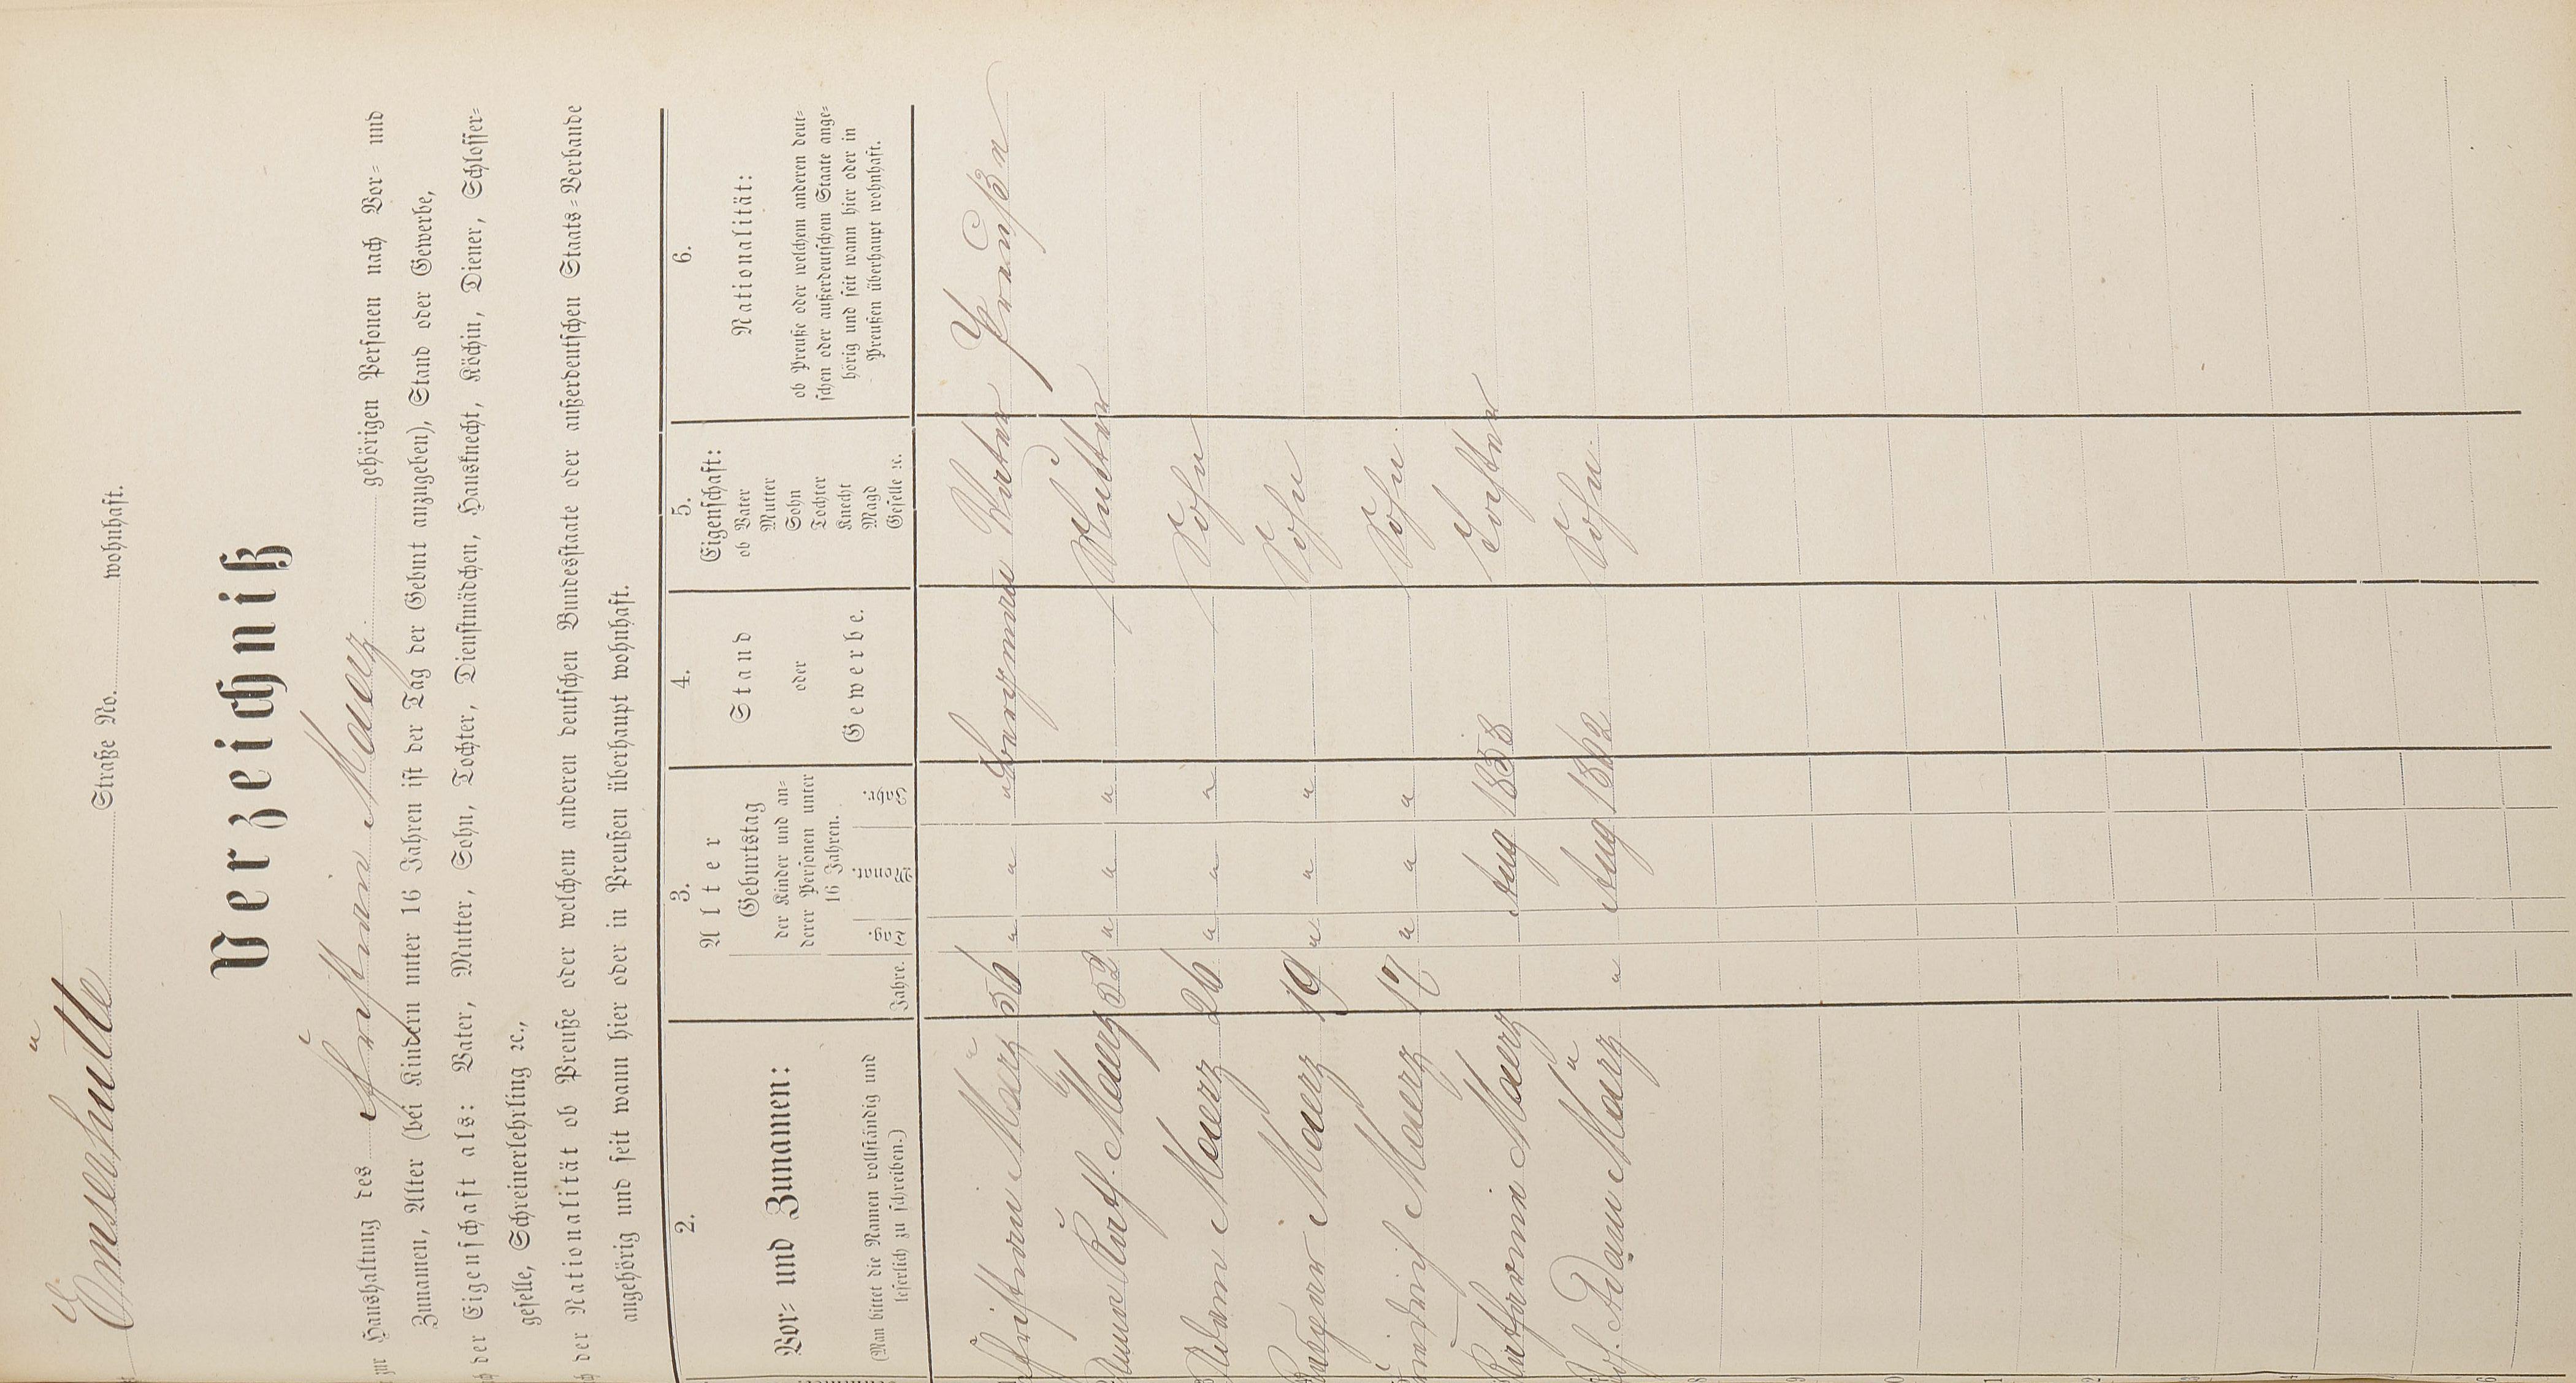 Emserhütte Straße No. wohnhaft.
Verzeichniß
zur Haushaltung des Christian Maerz gehörigen Personen nach Vor= und
Zunamen, Alter (bei Kindern unter 16 Jahren ist der Tag der Geburt anzugeben), Stand oder Gewerbe,
der Eigenschaft als: Vater, Mutter, Sohn, Tochter, Dienstmädchen, Hausknecht, Köchin, Diener, Schlosser=
geselle, Schreinerlehrling ꝛc.,
der Nationalität ob Preuße oder welchem anderen deutschen Bundesstaate oder außerdeutschen Staats=Verbande
angehörig und seit wann hier oder in Preußen überhaupt wohnhaft.
2. 3. 4. 5. 6.
Vor= und Zunamen:
(Man bittet die Namen vollständig und
leserlich zu schreiben.)
Alter
Jahre.
Geburtstag
der Kinder und an=
derer Personen unter
16 Jahren.
Tag Monat. Jahr.
Stand
oder
Gewerbe.
Eigenschaft:
ob Vater
Mutter
Sohn
Tochter
Knecht
Magd
Geselle ꝛc.
Nationalität:
ob Preuße oder welchem anderen deut=
schen oder außerdeutschen Staate ange=
hörig und seit wann hier oder in
Preußen überhaupt wohnhaft.
Christian März 56 " " " Bergmann Vater Preußen
Anna Kath. Maerz 52 " " " Mutter
Adam Maerz 26 " " " Sohn
Caspar Maerz 19 " " " Sohn
Friedrich Maerz 17 " " " Sohn
Katharina Maerz Aug 1858 Tochter
Joh. Adam März " Aug 1862 Sohn.